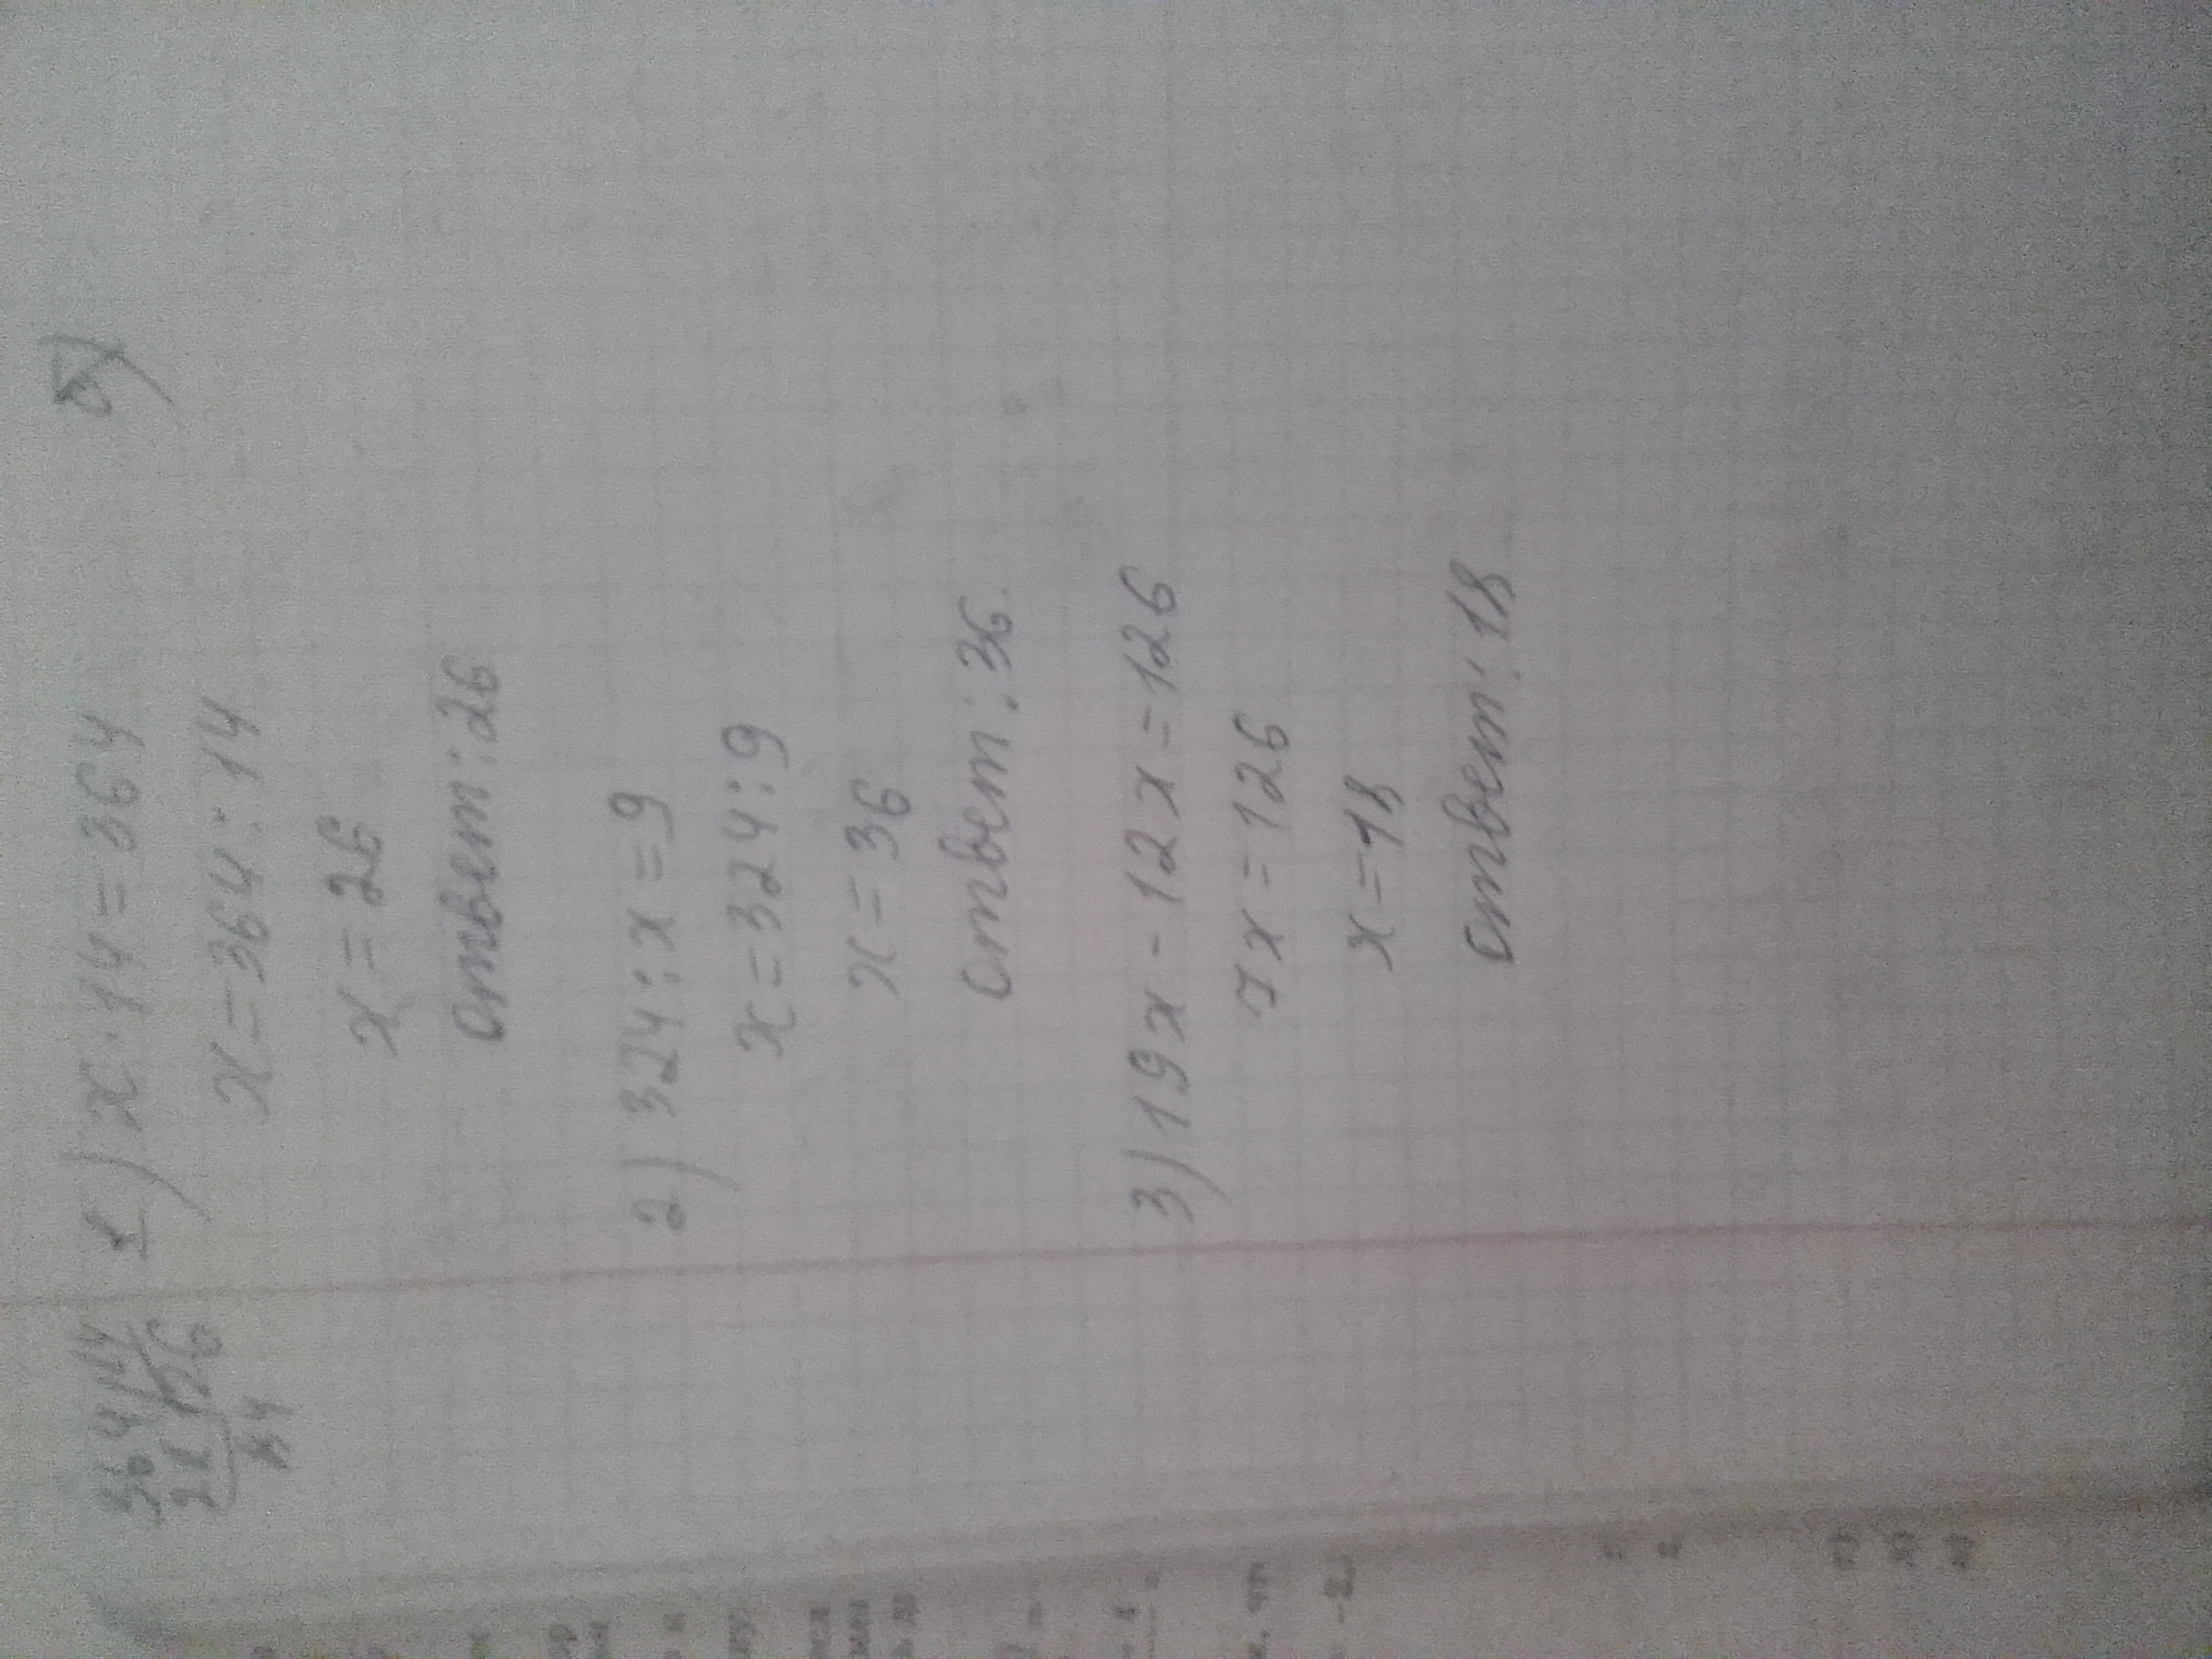 1) x · 14 = 364
x = 364 : 14
x = 26
ответ: 26
2) 324 : x = 9
x = 324 : 9
x = 36
ответ: 36
3) 19x - 12x = 126
7x = 126
x = 18
ответ: 18
364 14
26
84